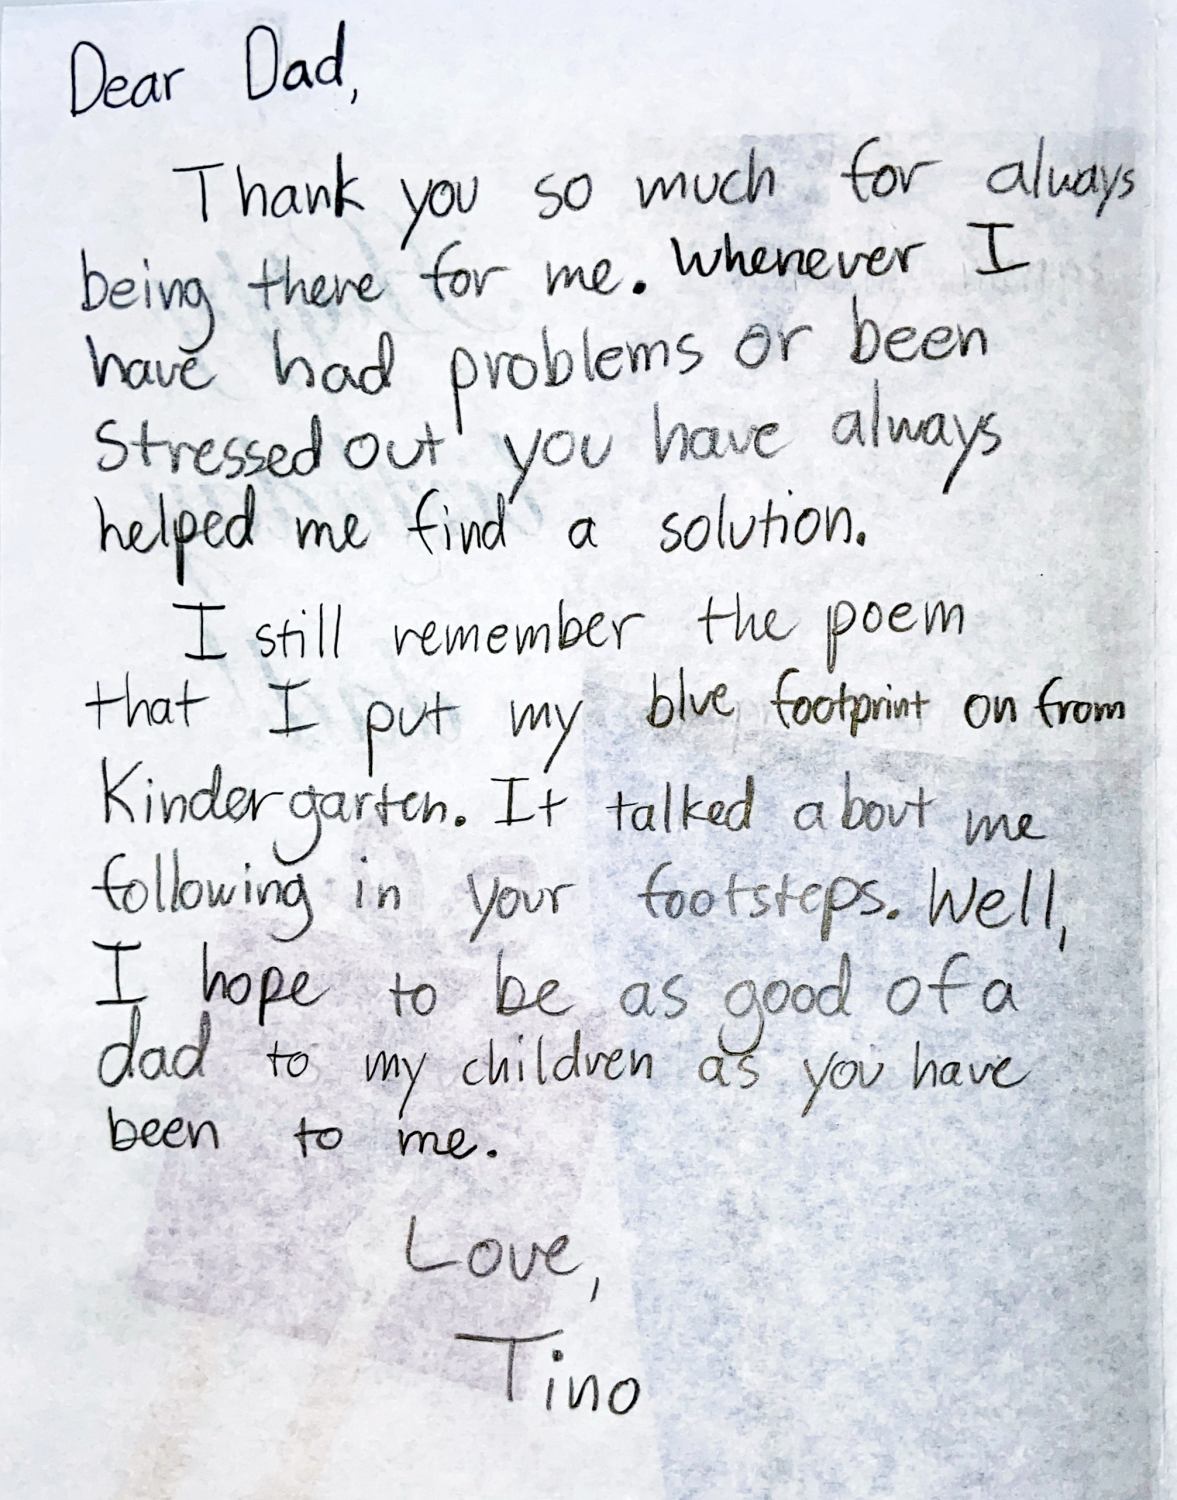 Dear Dad,
Thank you so much for always
being there for me. Whenever I
have had problems or been
Stressed out you have always
helped me find a solution.
I still remember the poem
that I put my blue footprint on from
Kindergarten. It talked about me
following in your footsteps. Well,
I hope to be as good of a
dad to my children as you have
been to me.
Love,
Tino